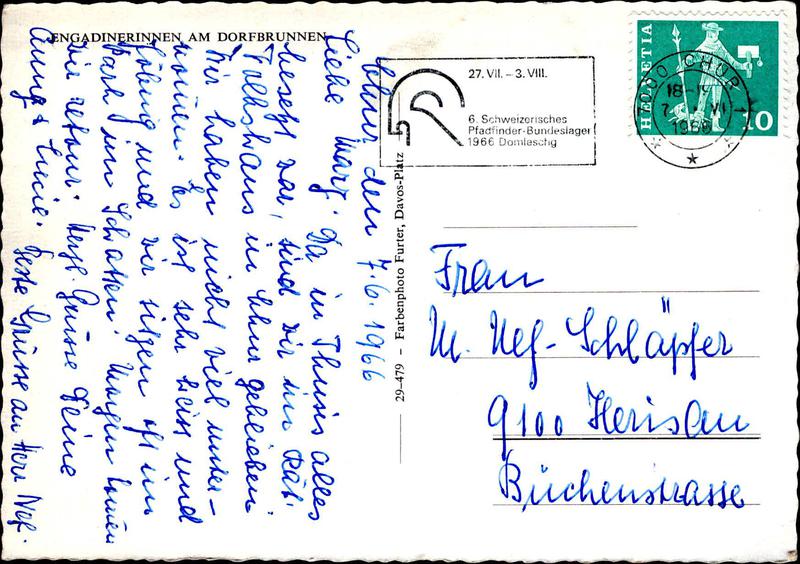 ENGADINERINNEN AM DORFBRUNNEN
Chur den 7.6.1966
Liebe Mary. Da in Thusis alles
besezt war, sind wir im Rät.
Volkshaus in Chur geblieben.
Wir haben nicht viel unter-
nommen. Es ist sehr heiss und
föhnig und wir sitzen oft im
Park im Schatten. Morgen kommen
wir retour. Herzl. Grüsse Deine
Anny & Lucie. Beste Grüsse an Herr Nef.
29-479 – Farbenphoto Furter, Davos-Platz
27. VII. – 3. VIII.
6. Schweizerisches
Pfadfinder-Bundeslager
1966 Domleschg
HELVETIA
10
7000 CHUR
18-
7. VI
1966
Frau
M. Nef-Schläpfer
9100 Herisau
Buchenstrasse